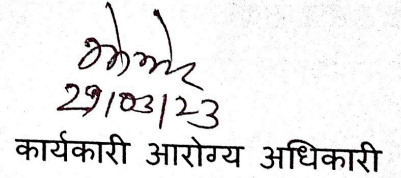 29/03/23
कार्यकारी आरोग्य अधिकारी